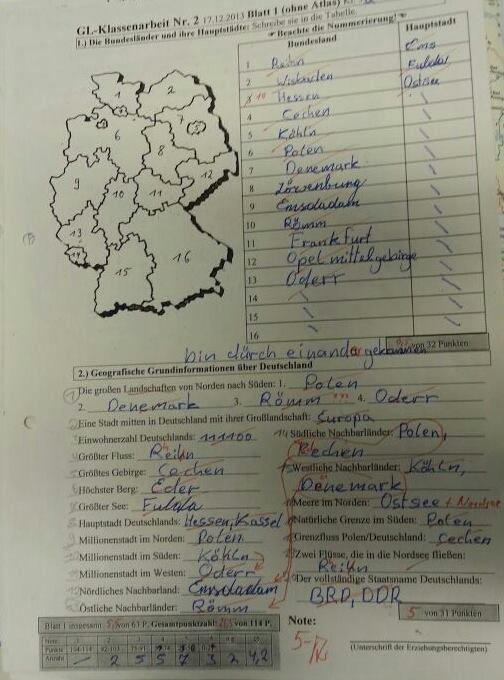 GL-Klassenarbeit Nr. 2 17.12.2013 Blatt 1 (ohne Atlas)
1.) Die Bundesländer und ihre Hauptstädte: Schreibe sie in die Tabelle.
Beachte die Nummerierung!
Bundesland Hauptstadt
1 Reihn Ems
2 Wisbaden Fulda
3 10 Hessen Ostsee
4 Cechen
5 Köhln
6 Polen
7 Denemark
8 Löwenburg
9 Emsdadam
10 Römm
11 Frankfurt
12 Opel mittelgebirge
13 Oderr
14
15
16
1
2
7
6
8
12
9
10
11
13
14
15
16
von 32 Punkten
bin dürch einandergekommen
2.) Geografische Grundinformationen über Deutschland
Die großen Landschaften von Norden nach Süden: 1. Polen
2. Denemark 3. Römm 4. Oderr
Eine Stadt mitten in Deutschland mit ihrer Großlandschaft: Europa
Einwohnerzahl Deutschlands: 111100
Größter Fluss: Reihn
Größtes Gebirge: Cechen
Höchster Berg: Eder
Größter See: Fulda
Hauptstadt Deutschlands: Hessen, Kassel
Millionenstadt im Norden: Polen
Millionenstadt im Süden: Köhln
Millionenstadt im Westen: Oderr
Nördliches Nachbarland: Emsdadam
Östliche Nachbarländer: Römm
14 Südliche Nachbarländer: Polen,
Cechen
Westliche Nachbarländer: Köhln,
Denemark
Meere im Norden: Ostsee + Nordsee
Natürliche Grenze im Süden: Polen
Grenzfluss Polen/Deutschland: Cechen
Zwei Flüsse, die in die Nordsee fließen:
Reihn
Der vollständige Staatsname Deutschlands:
BRD, DDR
5 von 31 Punkten
Blatt 1 insgesamt: von 63 P. Gesamtpunktzahl: von 114 P.
Note
Punkte
Anzahl – 2 5 5 7 3 2 4,2
Note:
5-
(Unterschrift der Erziehungsberechtigten)